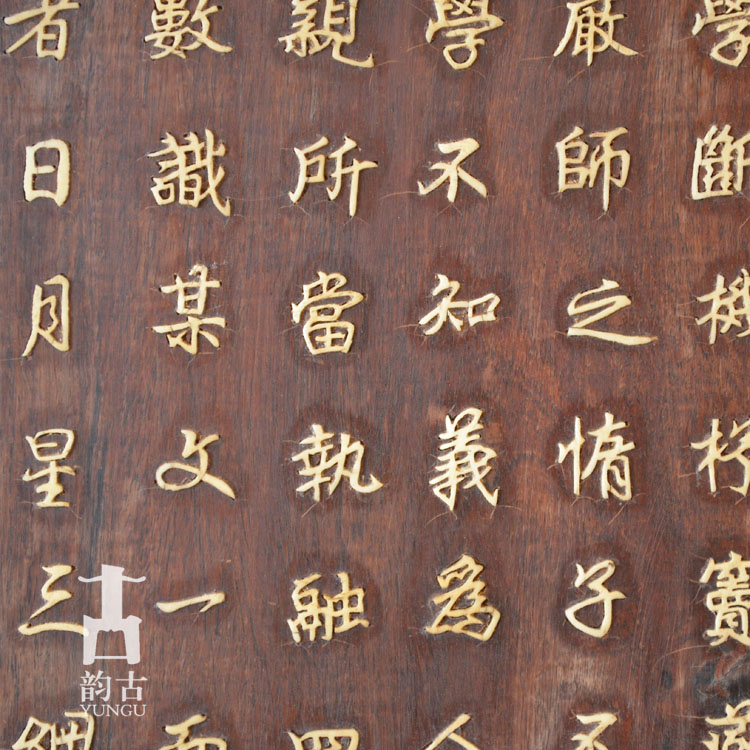 學斷機杼竇燕
嚴師之惰子不
學不知義為人
親所當執融四
數識某文一而
者日月星三綱
韵古
YUNGU